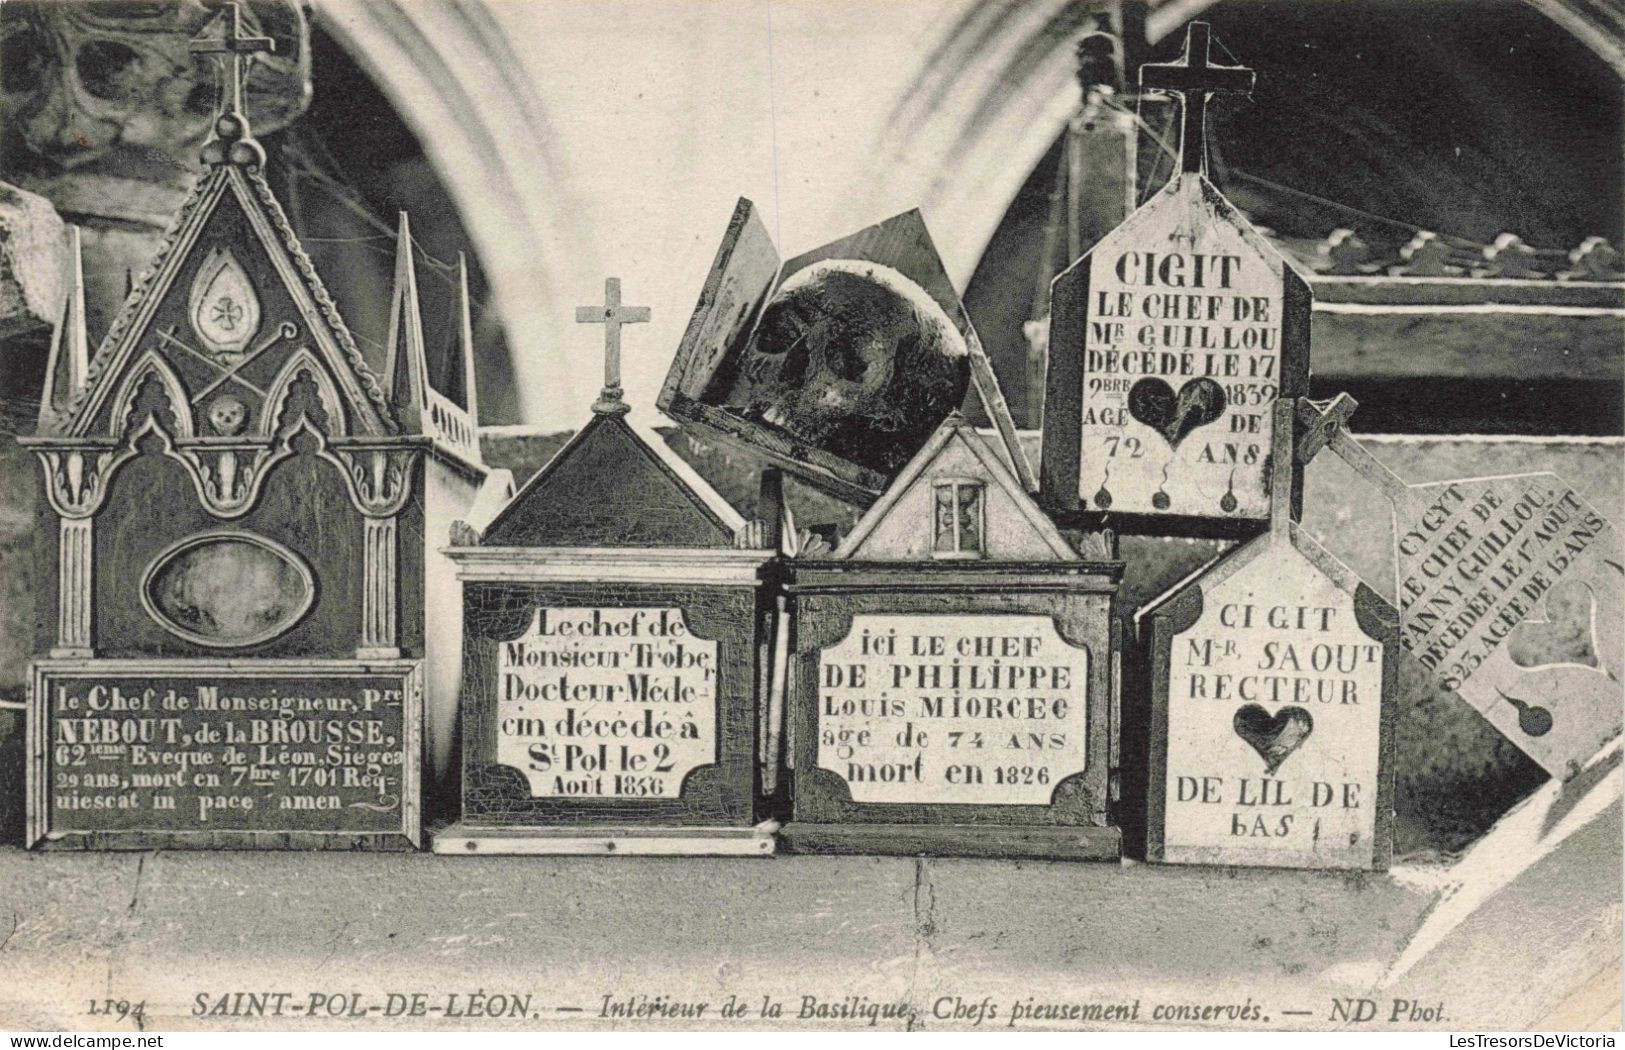 le Chef de Monseigneur, Pre
NÉBOUT, de la BROUSSE,
62ieme Eveque de Léon, Siegea
29 ans, mort en 7bre 1701 Req-
uiescat in pace amen
Le chef de
Monsieur Trobe
Docteur Méde-
cin décédé â
St Pol le 2
Août 1856
ici LE CHEF
DE PHILIPPE
LOUIS MIORCEC
agé de 74 ANS
mort en 1826
CIGIT
LE CHEF DE
MR GUILLOU
DÉCÉDÉ LE 17
9BRE 1839
AGÉ DE
72 ANS
CI GIT
MR, SAOUT
RECTEUR
DE LIL DE
bAS
CYGYT
LE CHEF DE
FANNY GUILLOU,
DÉCÉDÉE LE 17 AOÛT
1823. AGÉE DE 15 ANS
1194 SAINT-POL-DE-LÉON. — Intérieur de la Basilique, Chefs pieusement conservés. — ND Phot.
LesTresorsDeVictoria
www.delcampe.net